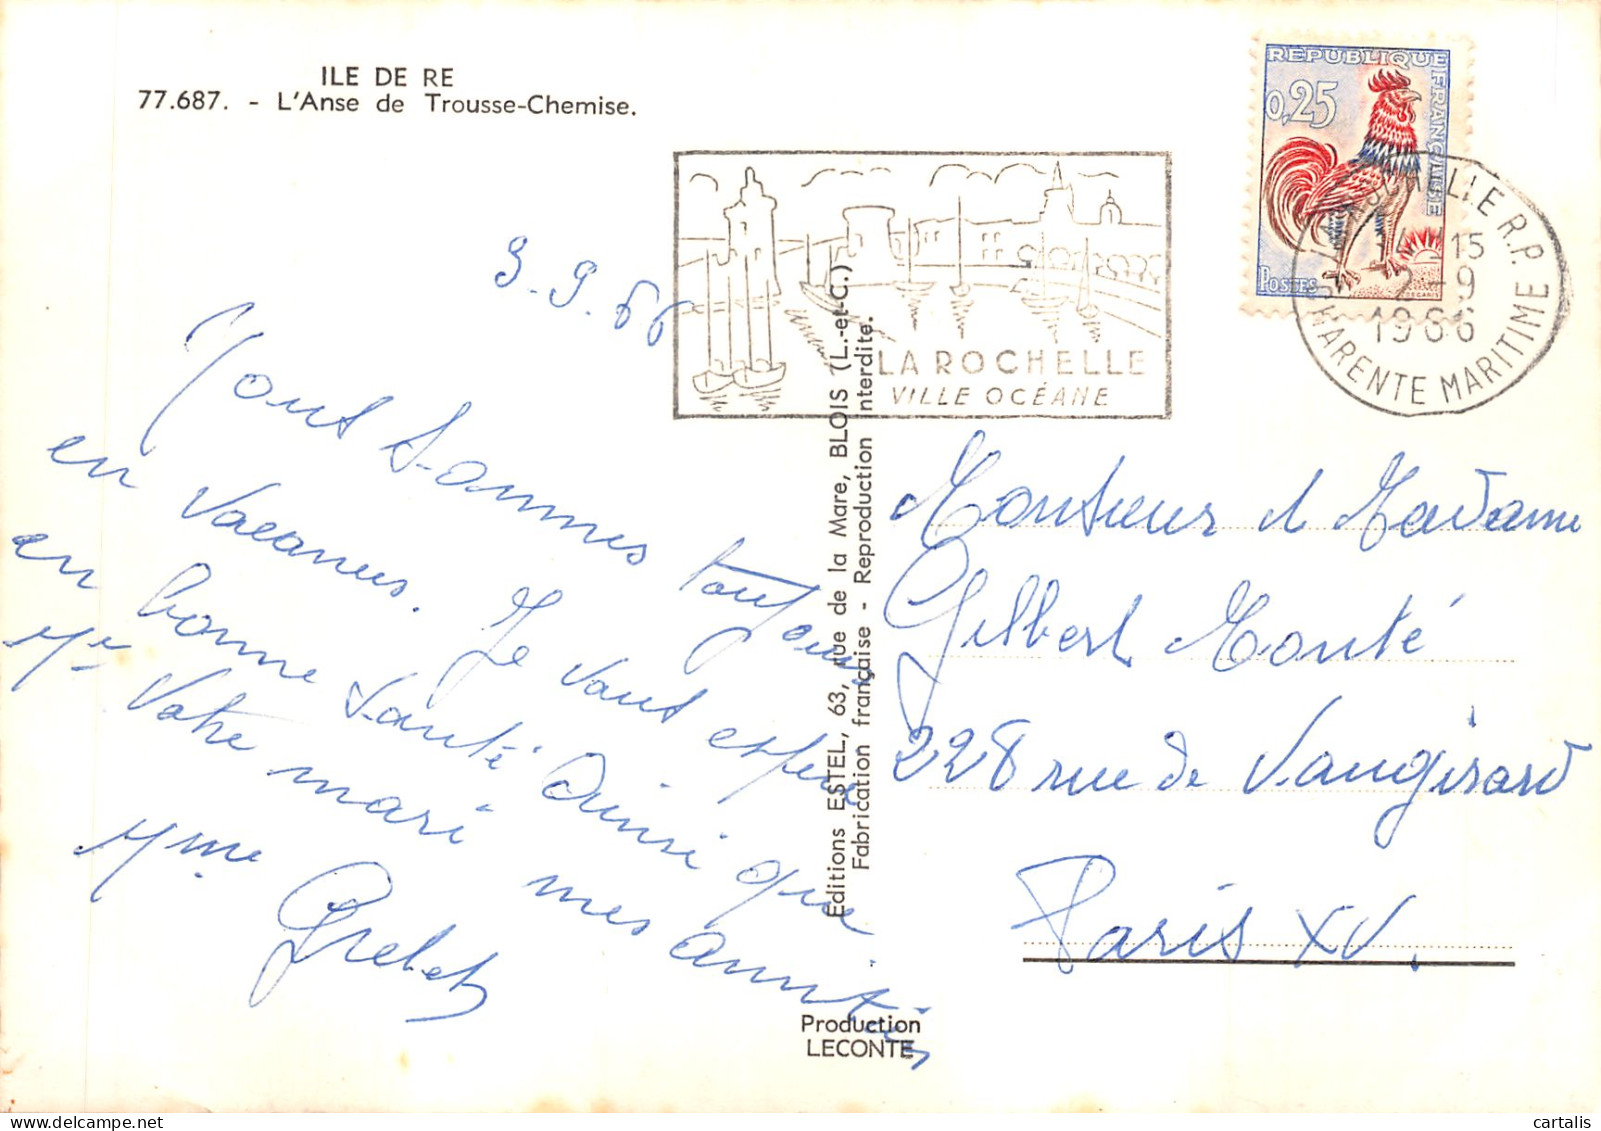 ILE DE RE
77.687. - L'Anse de Trousse-Chemise.
REPUBLIQUE FRANÇAISE
0,25
POSTES
DECARIS
LA ROCHELLE
VILLE OCÉANE
ELLE R.P.
15
2-9
1966
CHARENTE MARITIME
3.9.66
Nous sommes toujours
en vacances. Je vous espère
en bonne santé Ainsi que
Mr Votre mari mes amitiés
Mme Grebet
Editions ESTEL, 63, rue de la Mare, BLOIS (L.-et-C.)
Fabrication française - Reproduction interdite.
Production
LECONTE
Monsieur et Madame
Gilbert Monté
228 rue de Vaugirard
Paris XV.
cartalis